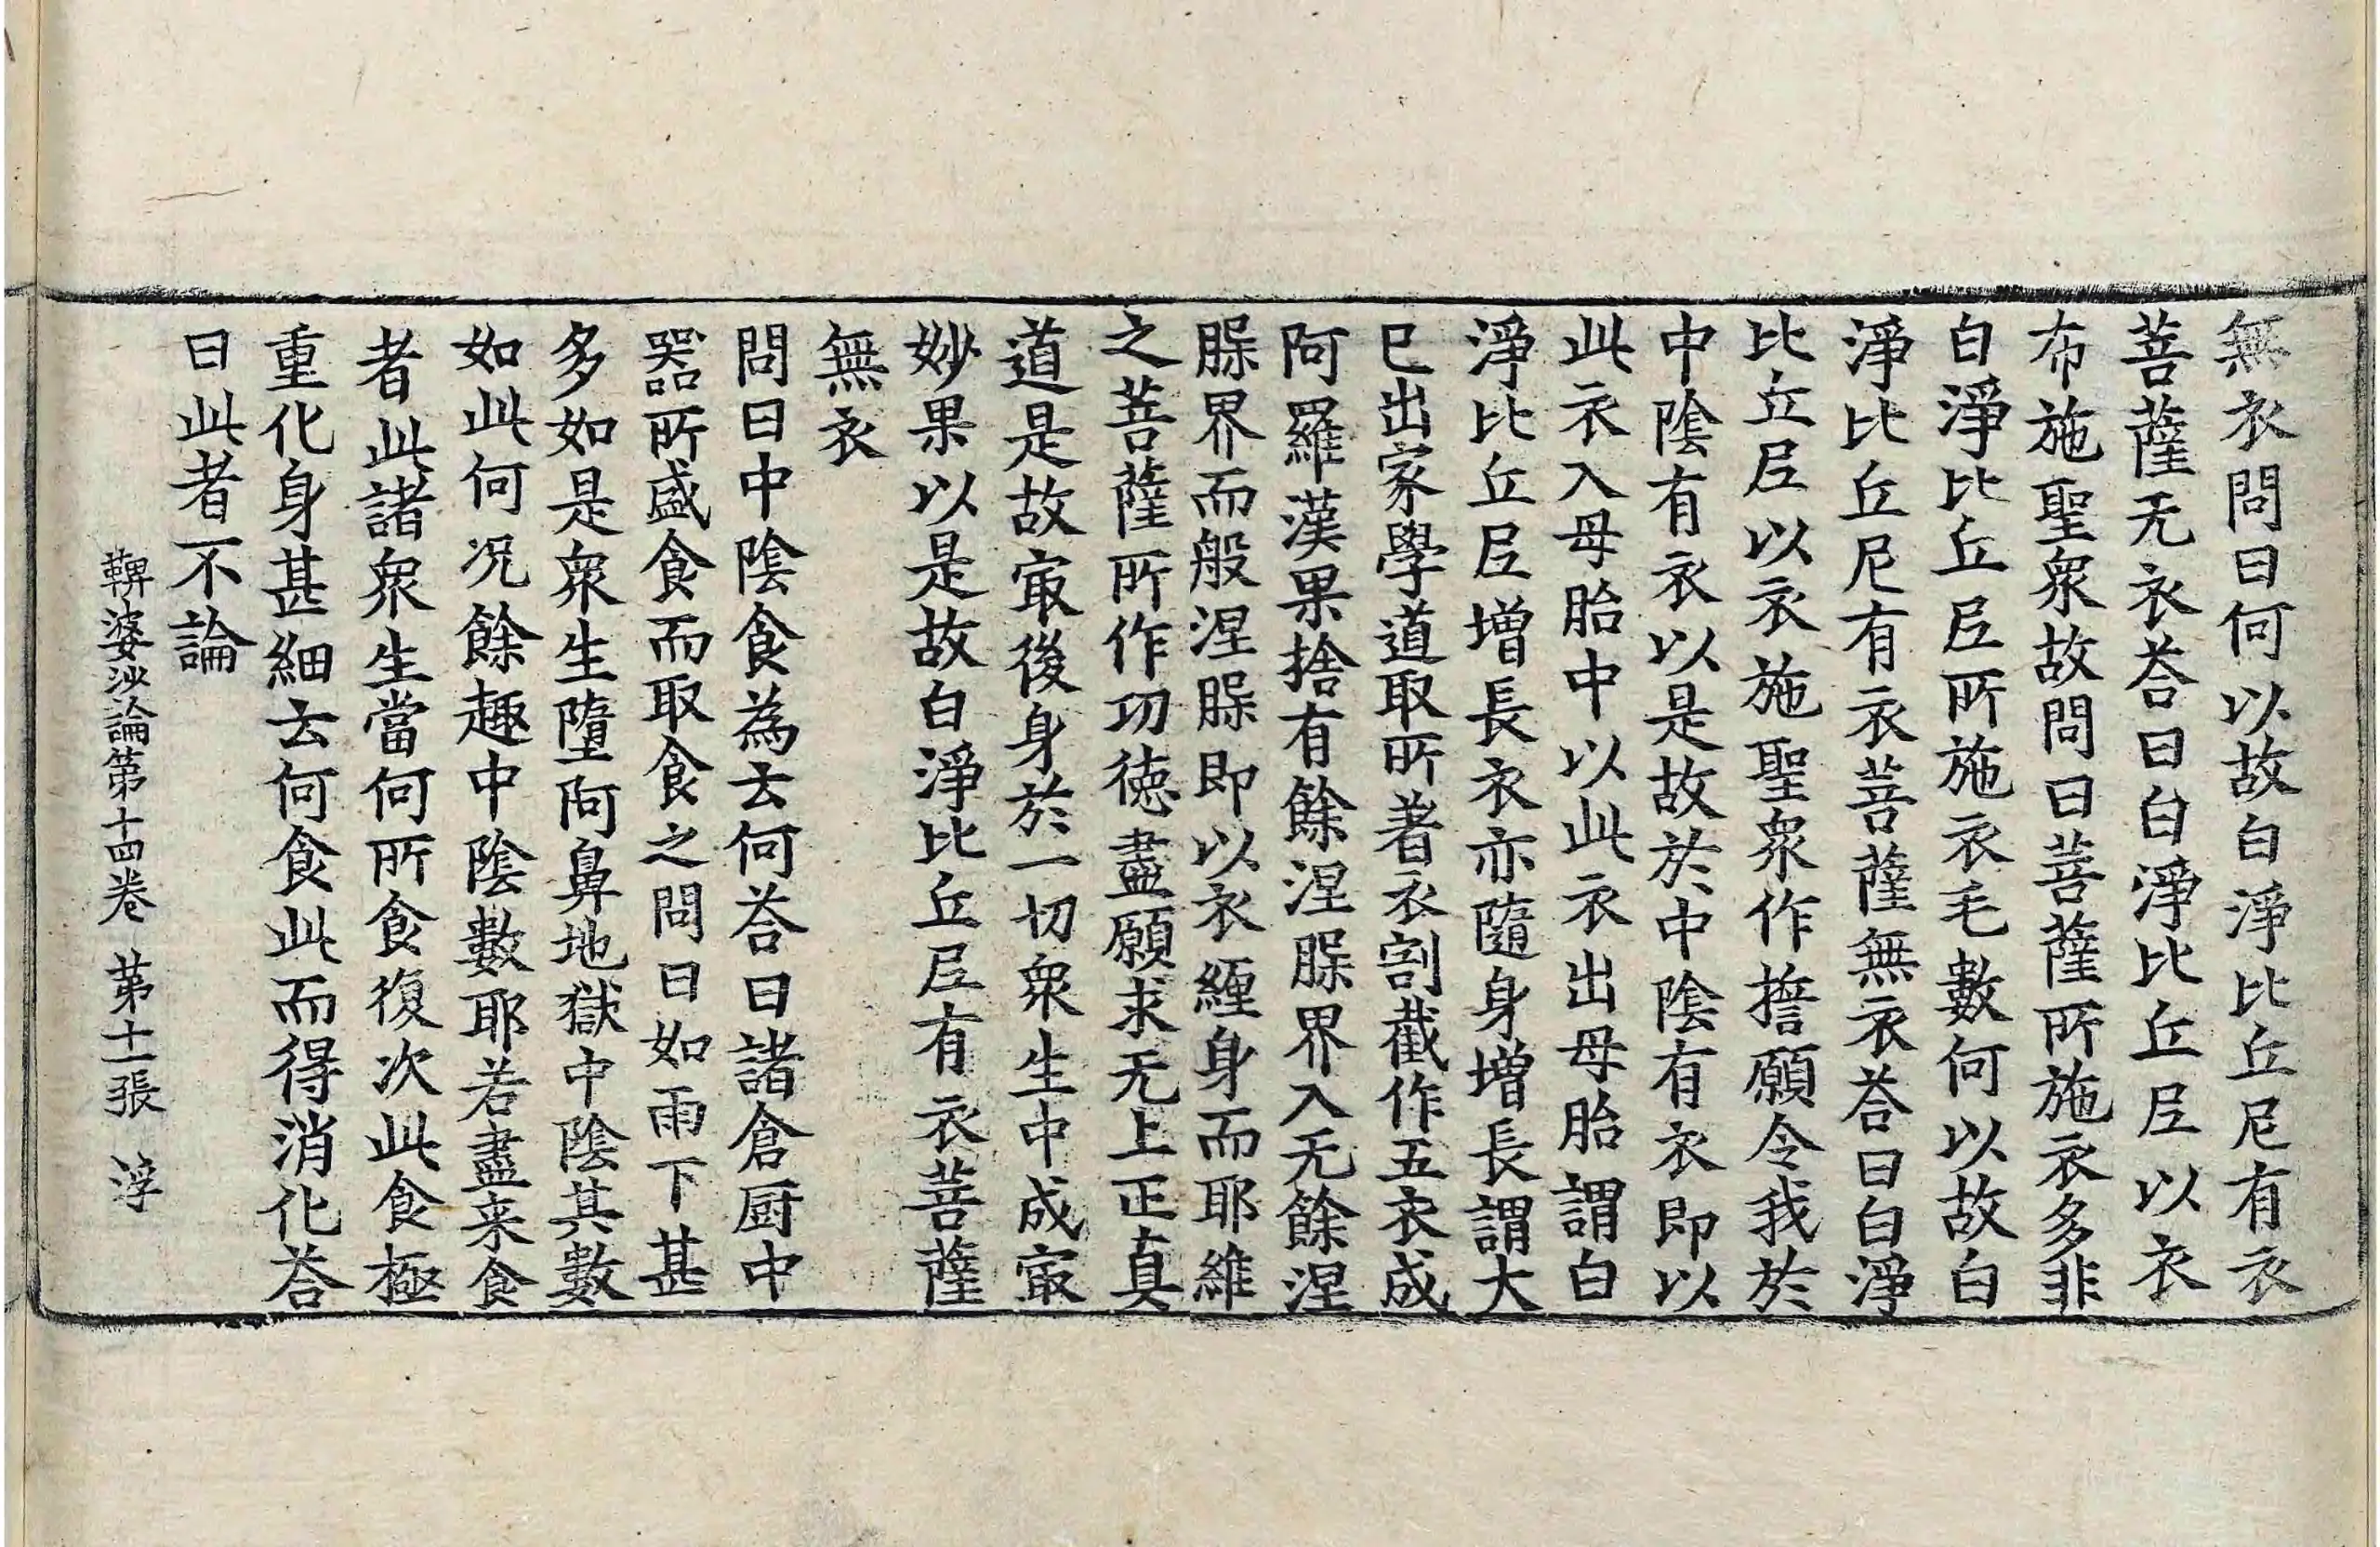 無衣問曰何以故白淨比丘尼有衣
菩薩无衣荅曰白淨比丘尼以衣
布施聖衆故問曰菩薩所施衣多非
白淨比丘尼所施衣毛數何以故白
淨比丘尼有衣菩薩無衣荅曰白淨
比丘尼以衣施聖衆作擔願令我於
中陰有衣以是故於中陰有衣即以
此衣入母胎中以此衣出母胎謂白
淨比丘尼增長衣亦隨身增長謂大
已出家學道取所著衣割截作五衣成
阿羅漢果捨有餘涅𣵀界入无餘涅
𣵀界而般涅𣵀即以衣纏身而耶維
之菩薩所作功德盡願求无上正真
道是故㝡後身於一切衆生中成㝡
妙果以是故白淨比丘尼有衣菩薩
無衣
問曰中陰食為云何荅曰諸倉厨中
器所盛食而取食之問曰如雨下甚
多如是衆生墮阿鼻地獄中陰其數
如此何况餘趣中陰數耶若盡来食
者此諸衆生當何所食復次此食極
重化身甚細云何食此而得消化荅
曰此者不論
鞞婆沙論第十四卷 第十一張 浮